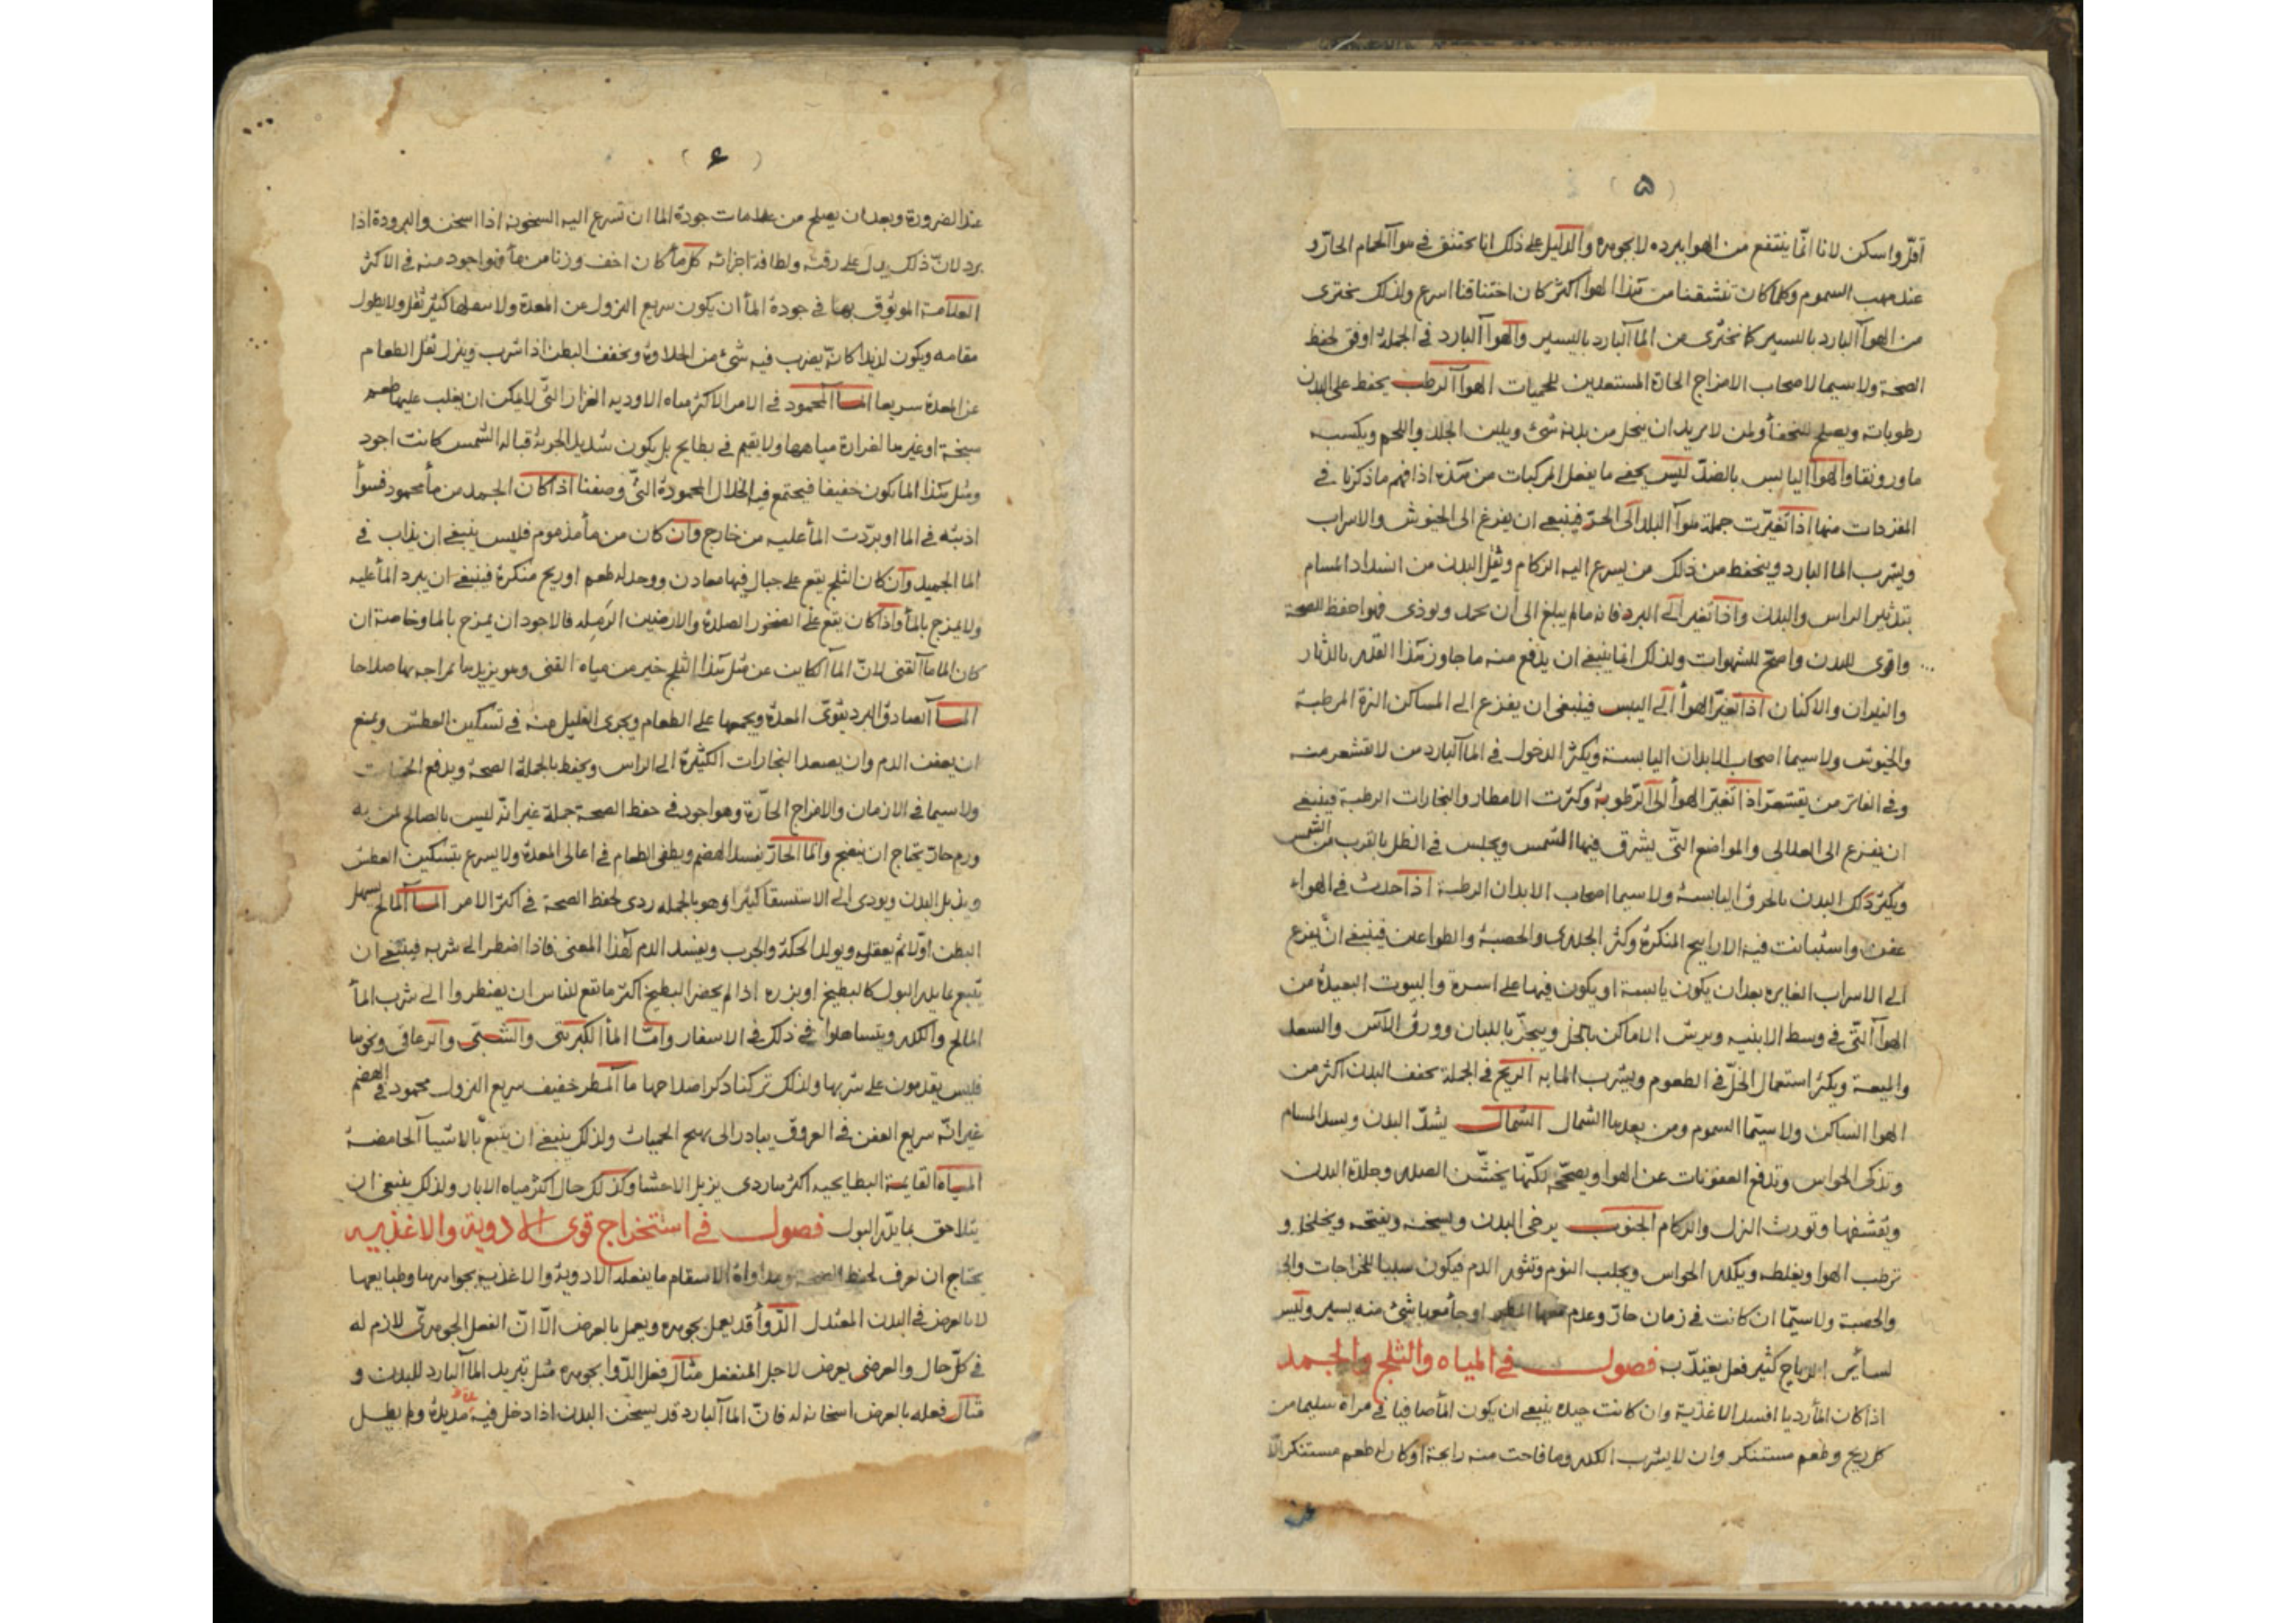 (۵)
اقلّ واسكن لانا انّما ينتفع من الهوا ببرده لا بجوهره والدّليل على ذلك انا نختنق في هوآ الحمام الحارّ و
عند مهب السموم وكلما كان تنشقنا من هذا الهوا اكثر كان اختناقنا اسرع ولذلك نجتزى
من الهوآ البارد باليسير كما نجتزى من المآ البارد باليسير والهوآ البارد في الجملة اوفق لحفظ
الصحة ولا سيما لاصحاب الامزاج الحارة المستعدين للحميات الهوآ الرطب يحفظ على البدن
رطوباته ويصلح للنحفآ ولمن لا يريد ان يتحلل من بدنه شئ ويلين الجلد واللحم ويكسبه
ما ورونقا والهوآ اليابس بالضدّ ليس يخفى ما يفعل المركبات من هذه اذا فهم ما ذكرنا في
المفردات منها اذا تغيّرت جملة هوآ البلد الى الحرّ فينبغى ان يفزع الى الخيوش والاسراب
ويشرب الما البارد ويتحفظ من ذلك من يسرع اليه الزكام وثقل البدن من انسداد المسام
بتدثير الراس والبدن واذا تغير الى البرد فانه مالم يبلغ الى أن يخدر ويوذى فهو احفظ للصحة
واقوى للبدن واصحّ للشهوات ولذلك انما ينبغى ان يدفع منه ما جاوز هذا القدر بالدثار
والنيران والاكنان اذا تغيّر الهوأ الى اليبس فينبغى ان يفزع الى المساكن النزة المرطبة
والخيوش ولا سيما اصحاب الابدان اليابسة ويكثر الدخول في المآ البارد من لا يقشعر منه
وفي الفاتر من يقشعرّ اذا تغيّر الهوأ الى الرّطوبة وكثرت الامطار والبخارات الرطبة فينبغى
ان يفزع الى العلالى والمواضع التّى يشرق فيها الشمس ويجلس في الظل بالقرب من الشمس
ويكثر دلك البدن بالخرق اليابسة ولا سيما اصحاب الابدان الرطبة اذا حدث في الهواء
عفن واستبانت فيه الاراييح المنكرة وكثر الجدرى والحصبة والطواعين فينبغى ان يفزع
الى الاسراب الغايره بعد ان يكون يابسة او يكون فيها على اسرة والبيوت البعيدة من
الهوآ التّى في وسط الابنيه ويرش الاماكن بالخل ويبخّر باللبان وورق الآس والسعد
والميعة ويكثر استعمال الخلّ في الطعوم ويشرب المآ به الريح في الجملة يجفف البدن اكثر من
الهوا الساكن ولا سيّما السموم ومن بعدها الشمال الشمال يشدّ البدن ويسد المسام
وتذكى الحواس وتدفع العفونات عن الهوا ويصحّحه لكنّها يخشّن الصدر وجلدة البدن
ويقشفها وتورث النزل والزكام الجنوب يرخى البدن ويسخنه ويفتحه ويخلخله و
ترطب الهوا ويغلظه ويكدر الحواس ويجلب النوم وتثور الدم فيكون سببا للخراجات والجد
والحصبة ولا سيّما ان كانت في زمان حارّ وعدم معها المطر او جأ معها شئ منه يسير وليس
لسائر الرياح كثير فعل يعتدّ به فصول في المياه والثلج والجمد
اذا كان المأ رديا افسد الاغذية وان كانت جيده ينبغى ان يكون المأ صافيا في مرآة سليما من
كل ريح وطعم مستنكر وان لا يشرب الكدر وما فاحت منه رايحة او كان له طعم مستنكر الّا
(۶)
عند الضرورة وبعد ان يصلح من علامات جودة الما ان تسرع اليه السخونه اذا اسخن والبرودة اذا
برد لانّ ذلك يدل على رقته ولطافة اجزائه كل مأ كان اخف وزنا من مأ فهو اجود منه في الاكثر
العلامة الموثوق بها في جودة المأ ان يكون سريع النزول عن المعدة ولا سفلها كثير ثقل ولا يطول
مقامه ويكون لذيذا كانّه يضرب فيه شئ من الحلاوة ويخفف البطن اذا شرب وينزل ثقل الطعام
عن المعدة سريعا المآ المحمود في الامر الاكثر مياه الاوديه الغزار التّى لا يمكن ان يغلب عليها طعم
سبخة او غيرها لغزارة مياهها ولا يقيم في بطايح بل يكون شديد الجرية قبالة الشمس كانت اجود
ومثل هذا الما يكون خفيفا فيجتمع فيه الخلال المحمودة التّى وصفنا اذا كان الجمد من مأ محمود فسوأ
اذبته في الما او برّدت المأ عليه من خارج وان كان من مأ مذموم فليس ينبغى ان يذاب في
الما الجميد وان كان الثلج يقع على جبال فيها معادن ووجد له طعم او ريح منكرة فينبغى ان يبرد المأ عليه
ولا يمزج بالمأ واذا كان يقع على الصخور الصلدة والارضين الرّملة فالاجود ان يمزج بالما وخاصة ان
كان الما مآ القنى لانّ المآ الكاين عن مثل هذا الثلج خير من مياه القنى وهو يزيدها بمزاجه بها صلاحا
المآ الصادق البرد يقوّى المعدة ويجمعها على الطعام ويجزى القليل منه في تسكين العطش ويمنع
ان يعفن الدم وان يصعد البخارات الكثيرة الى الراس ويحفظ بالجملة الصحة ويدفع الحميات
ولا سيما في الازمان والامزاج الحارّة وهو اجود في حفظ الصحة جملة غير انّه ليس بالصالح لمن به
ورم حارّ يحتاج ان ينضج والمآ الحارّ يفسد الهضم ويطفى الطعام في اعالى المعدة ولا يسرع بتسكين العطش
ويذبل البدن ويودى الى الاستسقا كثيرا وهو بالجمله ردى لحفظ الصحة في اكثر الامر المآ المالح يسهل
البطن اوّلا ثم يعقله ويولد الحكة والجرب ويفسد الدم لهذا المعنى فاذا اضطر الى شربه فينبغى ان
يتبع بما يدر البول كالبطيخ او بزره اذا لم يحضر البطيخ اكثر ما تقع للناس ان يضطروا الى شرب المأ
المالح والكدر ويتساهلوا في ذلك في الاسفار وامّا المأ الكبريتى والشّبّى والزعاقى ونحوها
فليس يقدمون على شربها ولذلك تركنا ذكر اصلاحها مآ المطر خفيف سريع النزول محمود في الهضم
غير انّه سريع العفن في العروق يبادر الى تهيج الحميات ولذلك ينبغى ان يتبع بالاشيآ الحامضة
المياه القايمة البطايحيه اكثرها ردى يزبل الاحشا وكذلك حال اكثر مياه الابار ولذلك ينبغى ان
يتلاحق بما يدرّ البول فصول في استخراج قوى الادوية والاغذيه
يحتاج ان نعرف لحفظ الصحة ومداواة الاسقام ما يفعله الادوية والاغذية بجواهرها وطبايعها
لا بالعرض في البدن المعتدل الدّوأ قد يعمل بجوهره ويعمل بالعرض الّا انّ الفعل الجوهرىّ لازم له
في كلّ حال والعرضى يعرض لاجل المنفعل مثال فعل الدّوا بجوهره مثل تبريد المآ البارد للبدن و
مثال فعله بالعرض اسخانه له فانّ المآ البارد قد يسخن البدن اذا دخل فيه مديدة ولم يطل